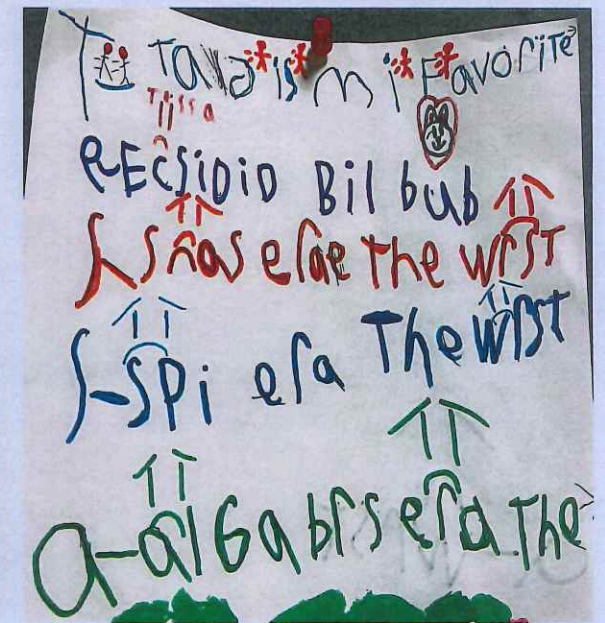 T TaVa is mi Favorite
Tjissa
e-Ecsidid Bil bub
s-snas erae the wrst
s-spi era The wrst
a-alGabrs era The